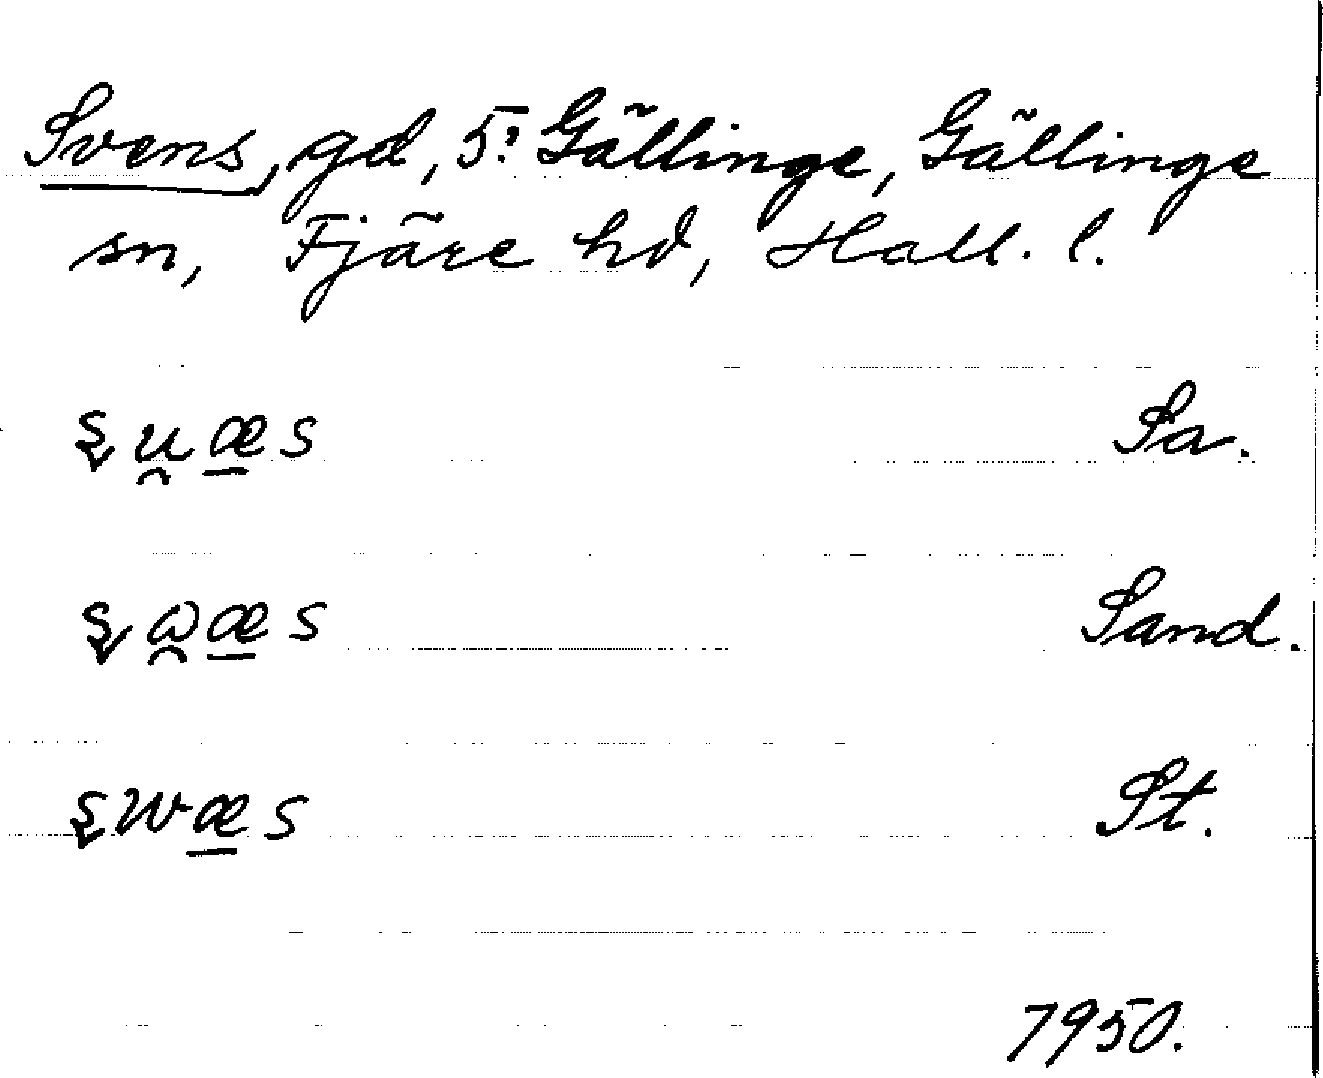 Svens, gd, 5? Gällinge, Gällinge
sn, Fjäre hd, Hall. l.
s̬u̯æ̲s Sa.
s̬ɷ̯æ̲s Sand.
s̬wæ̲s St.
1950.